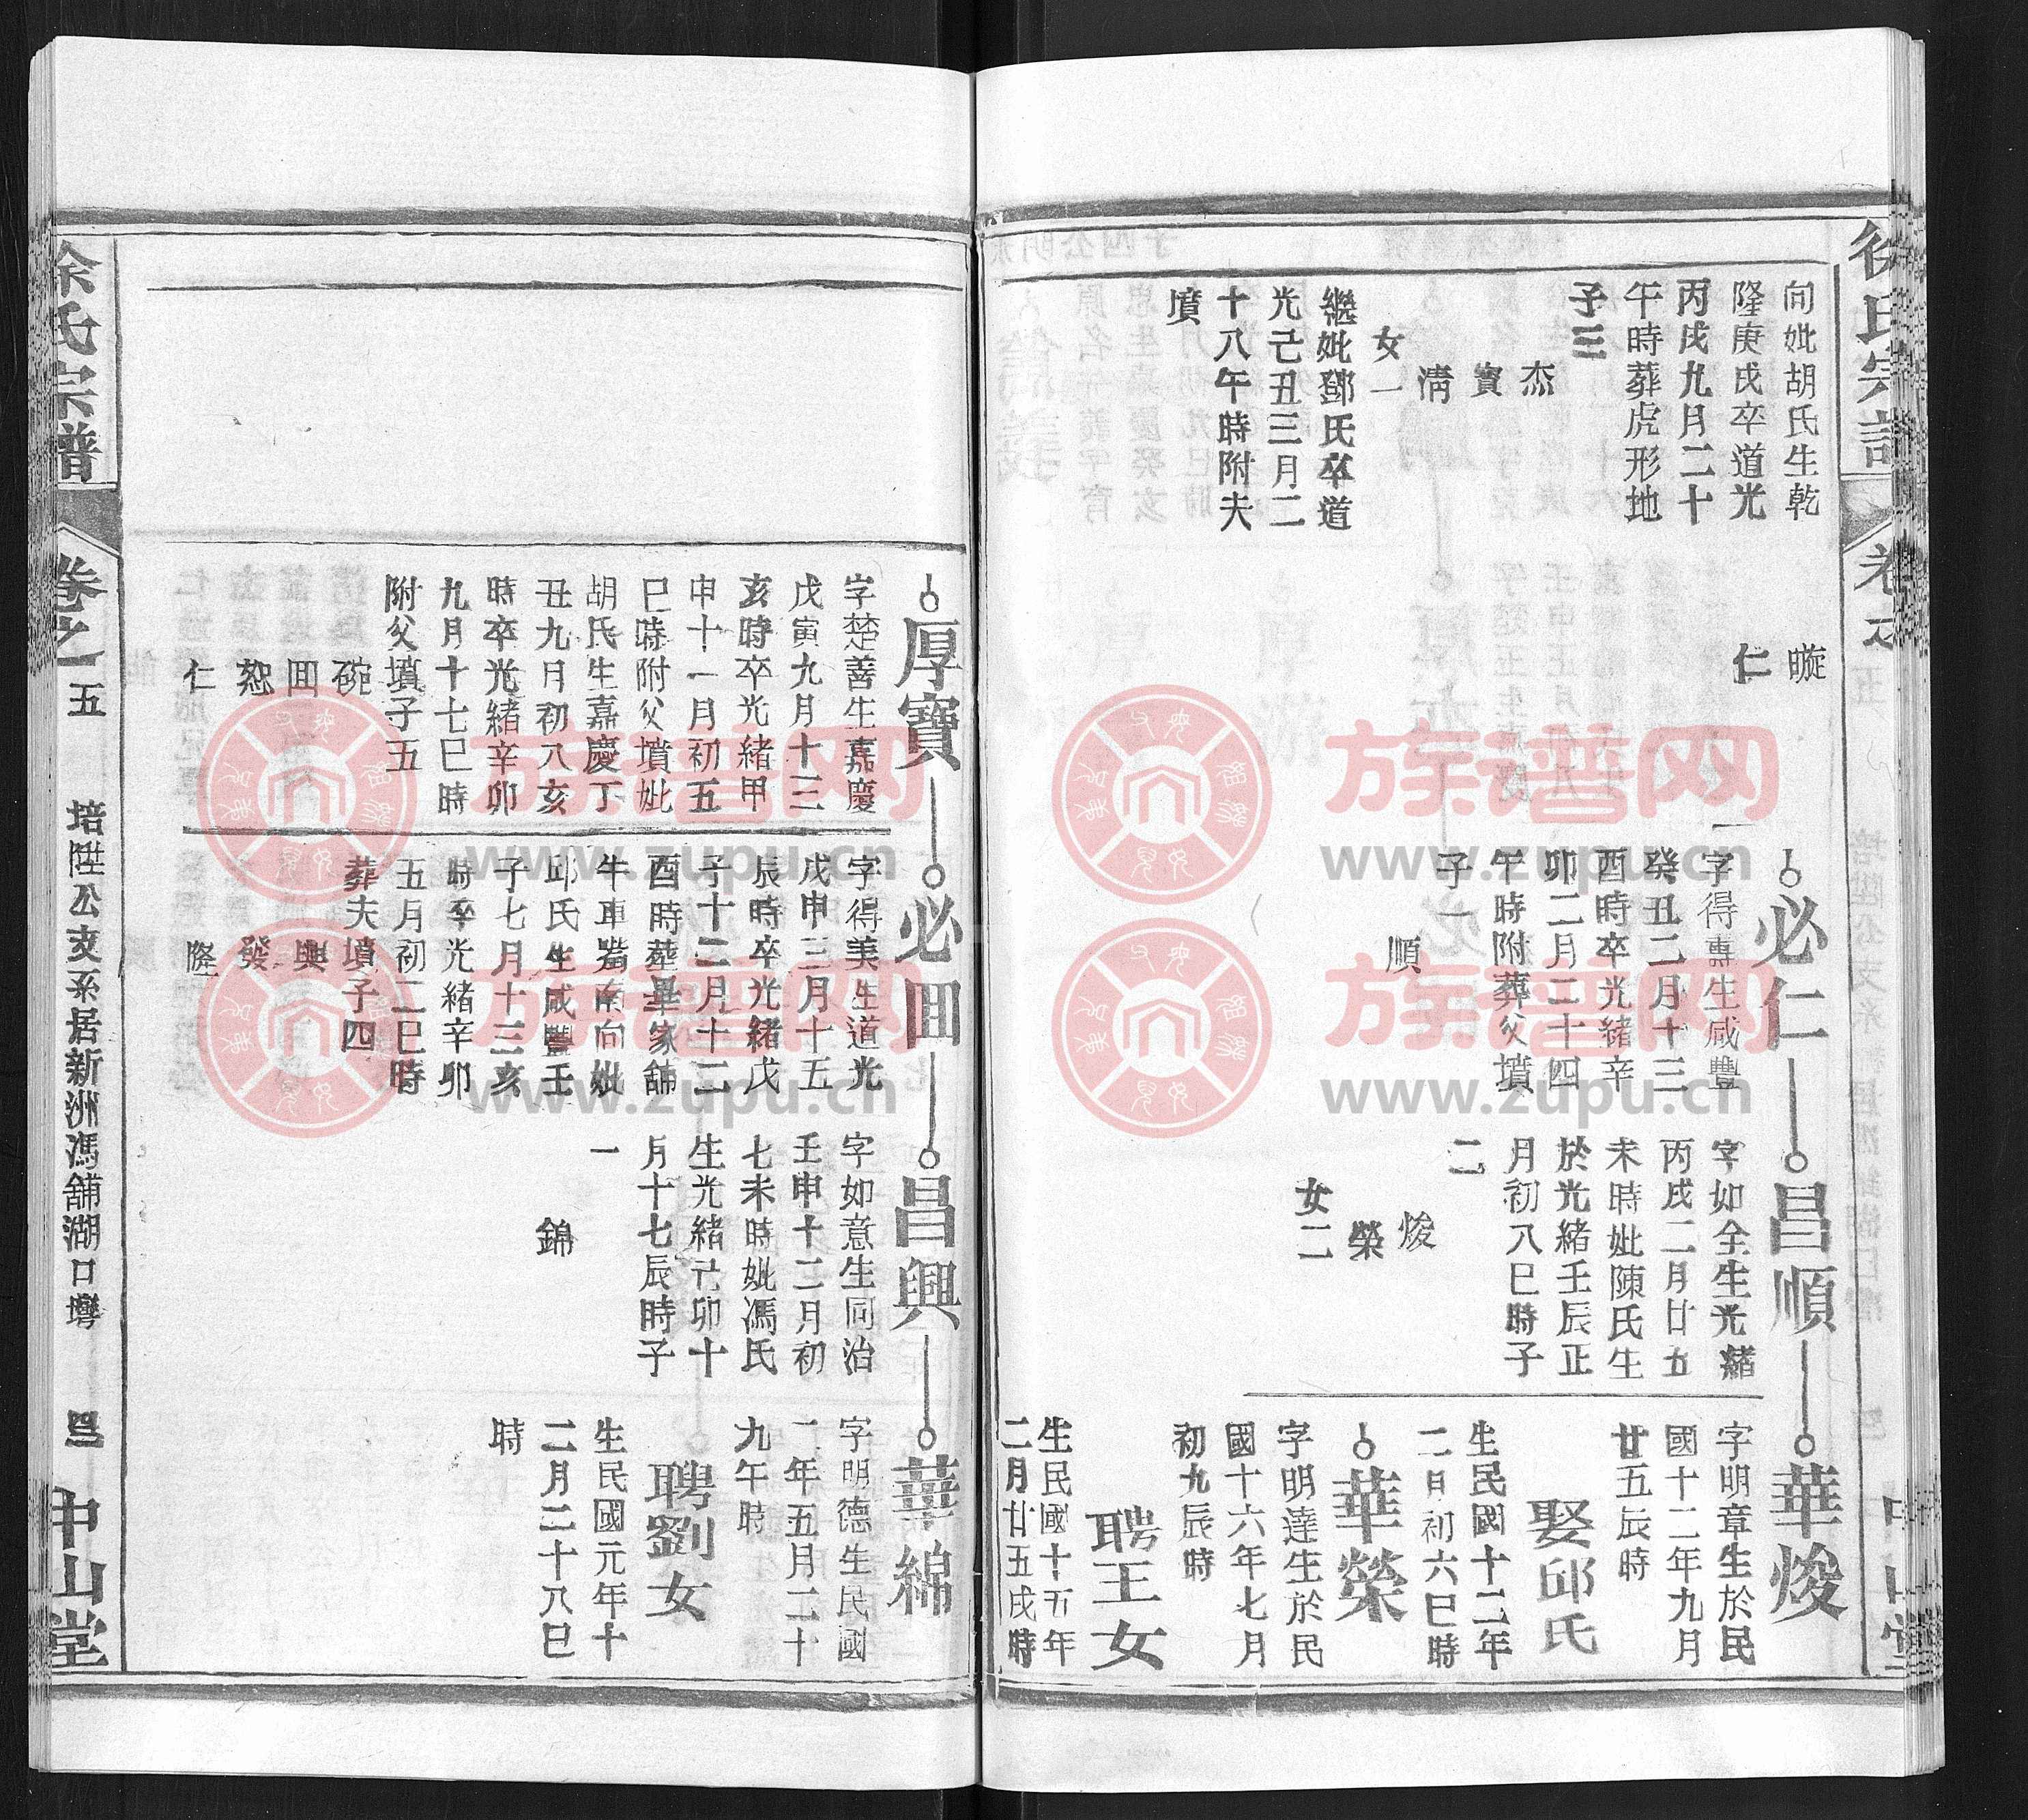 徐氏宗譜
卷之五
向妣胡氏生乾
隆庚戌卒道光
丙戌九月二十
午時葬虎形地
子三
杰
寳
清
女一
繼妣鄧氏卒道
光己丑三月二
十八午時附夫
墳
暶
仁
必仁
字得專生咸豐
癸丑二月十三
酉時卒光緒辛
卯二月二十四
午時附葬父墳
子一
順
昌順
字如全生光緒
丙戌二月廿五
未時妣陳氏生
於光緒壬辰正
月初八巳時子
二
焌
榮
女二
華焌
字明章生於民
國十二年九月
廿五辰時
娶邱氏
生民國十二年
二月初六巳時
華榮
字明達生於民
國十六年七月
初九辰時
聘王女
生民國十五年
二月廿五戌時
厚寶
字楚善生嘉慶
戊寅九月十三
亥時卒光緒甲
申十一月初五
巳時附父墳妣
胡氏生嘉慶丁
丑九月初八亥
時卒光緒辛卯
九月十七巳時
附父墳子五
碗
田
恕
仁
必田
字得美生道光
戊申三月十五
辰時卒光緒戊
子十二月十二
酉時葬畢家舖
牛車嵩南向妣
邱氏生咸豐壬
子七月十三亥
時卒光緒辛卯
五月初二巳時
葬夫墳子四
興
發
隆
昌興
字如意生同治
壬申十二月初
七未時妣馮氏
生光緒己卯十
月十七辰時子
一
錦
華綿
字明德生民國
二年五月二十
九午時
聘劉女
生民國元年十
二月二十八巳
時
徐氏宗譜
卷之五
培陞公支系居新洲馮舖湖口灣
中山堂
族谱网
www.zupu.cn
族谱网
www.zupu.cn
族谱网
www.zupu.cn
族谱网
www.zupu.cn